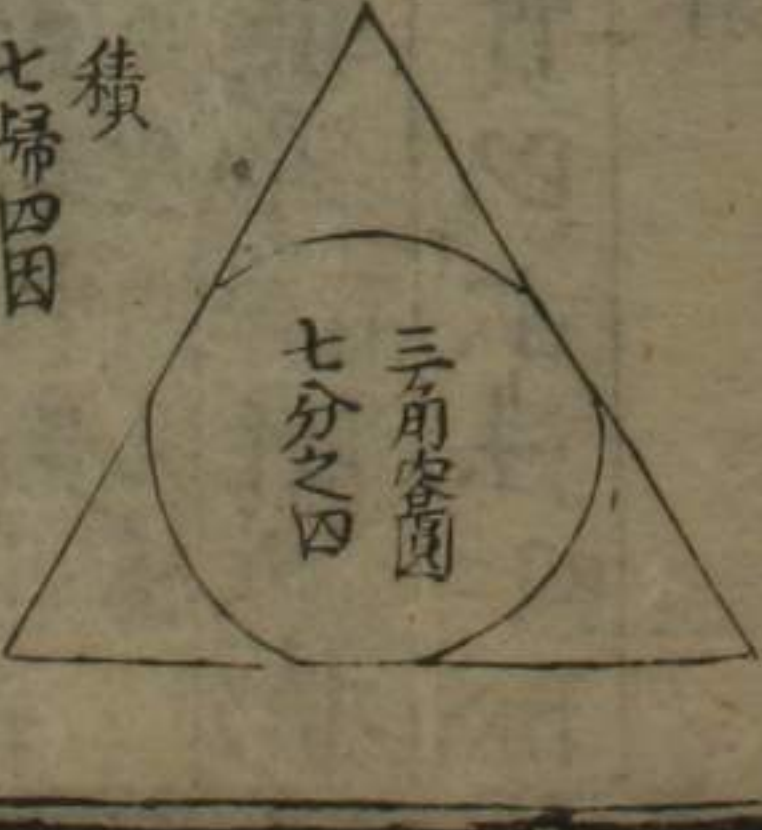 三角内容圓
七分之四
積
七歸四因